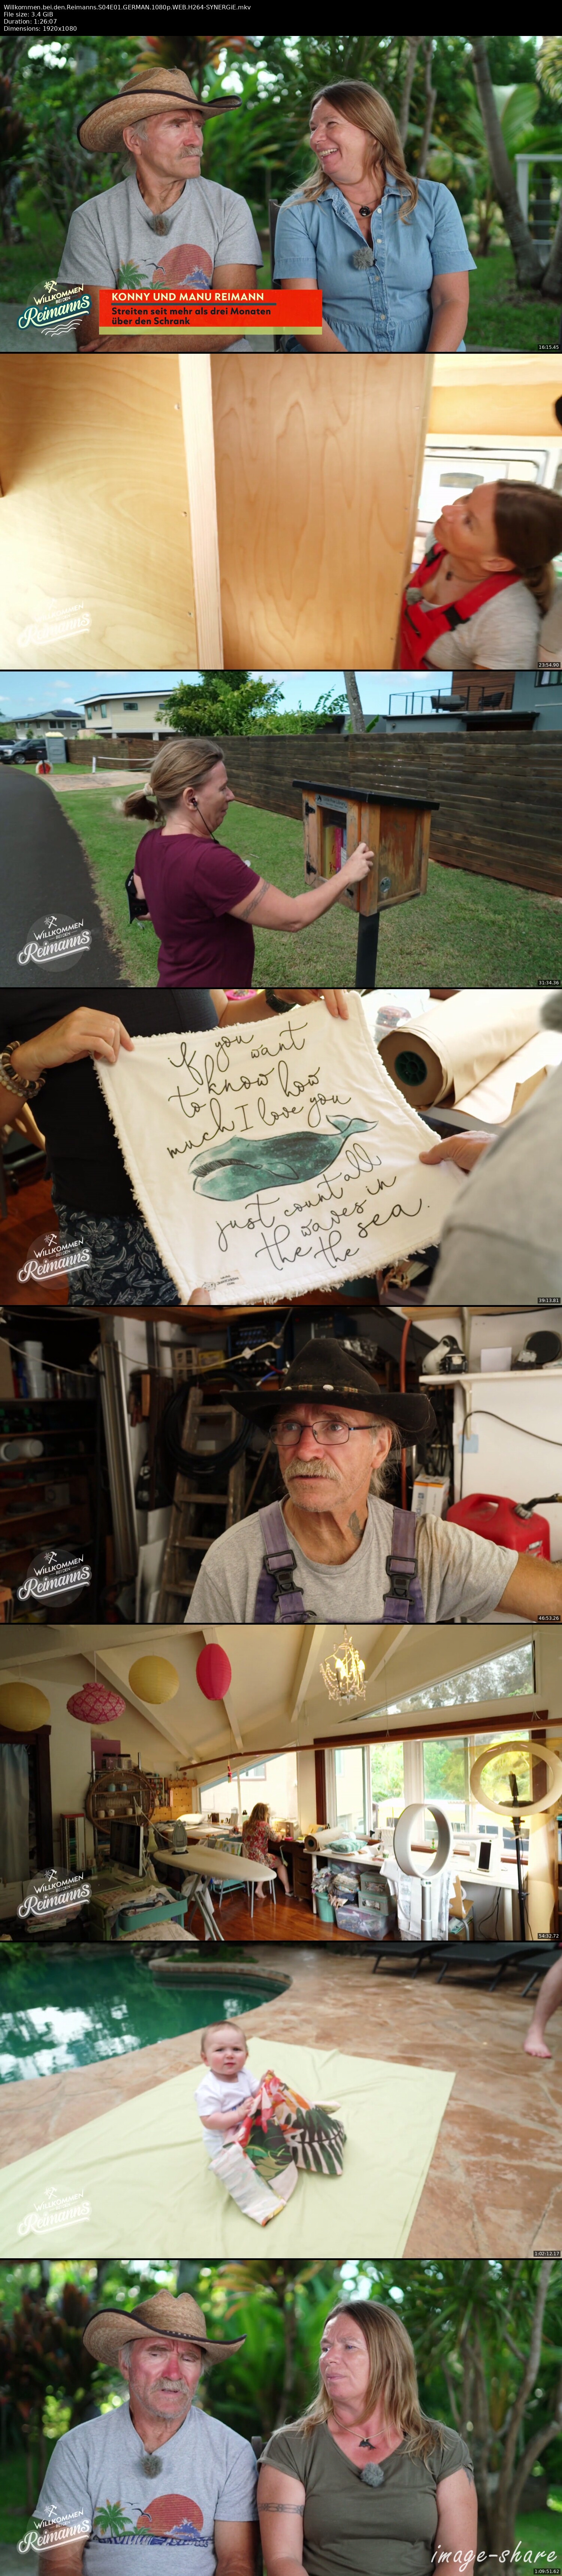 Willkommen.bei.den.Reimanns.S04E01.GERMAN.1080p.WEB.H264-SYNERGIE.mkv
File size: 3.4 GiB
Duration: 1:26:07
Dimensions: 1920x1080
WILLKOMMEN
BEI DEN
Reimanns
KONNY UND MANU REIMANN
Streiten seit mehr als drei Monaten
über den Schrank
16:15.45
WILLKOMMEN
Reimanns
23:54.90
WILLKOMMEN
BEI DEN
Reimanns
31:34.36
if you want
to know how
much I love you
just count all
the waves in
the the sea.
WILLKOMMEN
BEI DEN
Reimanns
39:13.81
WILLKOMMEN
BEI DEN
Reimanns
46:53.26
WILLKOMMEN
BEI DEN
Reimanns
54:32.72
WILLKOMMEN
Reimanns
1:02:12.17
WILLKOMMEN
BEI DEN
Reimanns
image-share
1:09:51.62